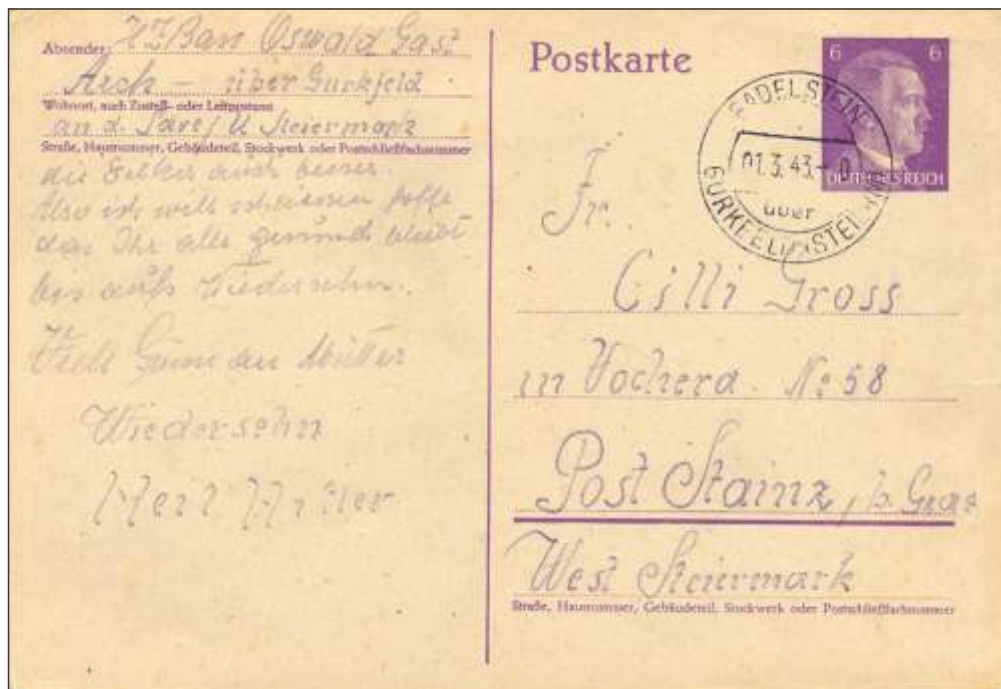 Absender: HJ/Ban Oswald Gast
Arch - über Gurkfeld
Wohnort, auch Zustell- oder Leitpostamt
an d. Save / U Steiermark
Straße, Hausnummer, Gebäudeteil, Stockwerk oder Postschließfachnummer
die auch
Also ich will hoffe
das Ihr alle gesund bleibt
bis aufs Wiedersehn.
Viele an Mutter
Wiedersehn
Heil Hitler
Postkarte
6 6
DEUTSCHES REICH
RADELSTEIN
01.3.43
über
GURKFELD (STEIERM)
Fr.
Cilli Gross
in Vochera No 58
Post Stainz, b. Graz
West Steiermark
Straße, Hausnummer, Gebäudeteil, Stockwerk oder Postschließfachnummer